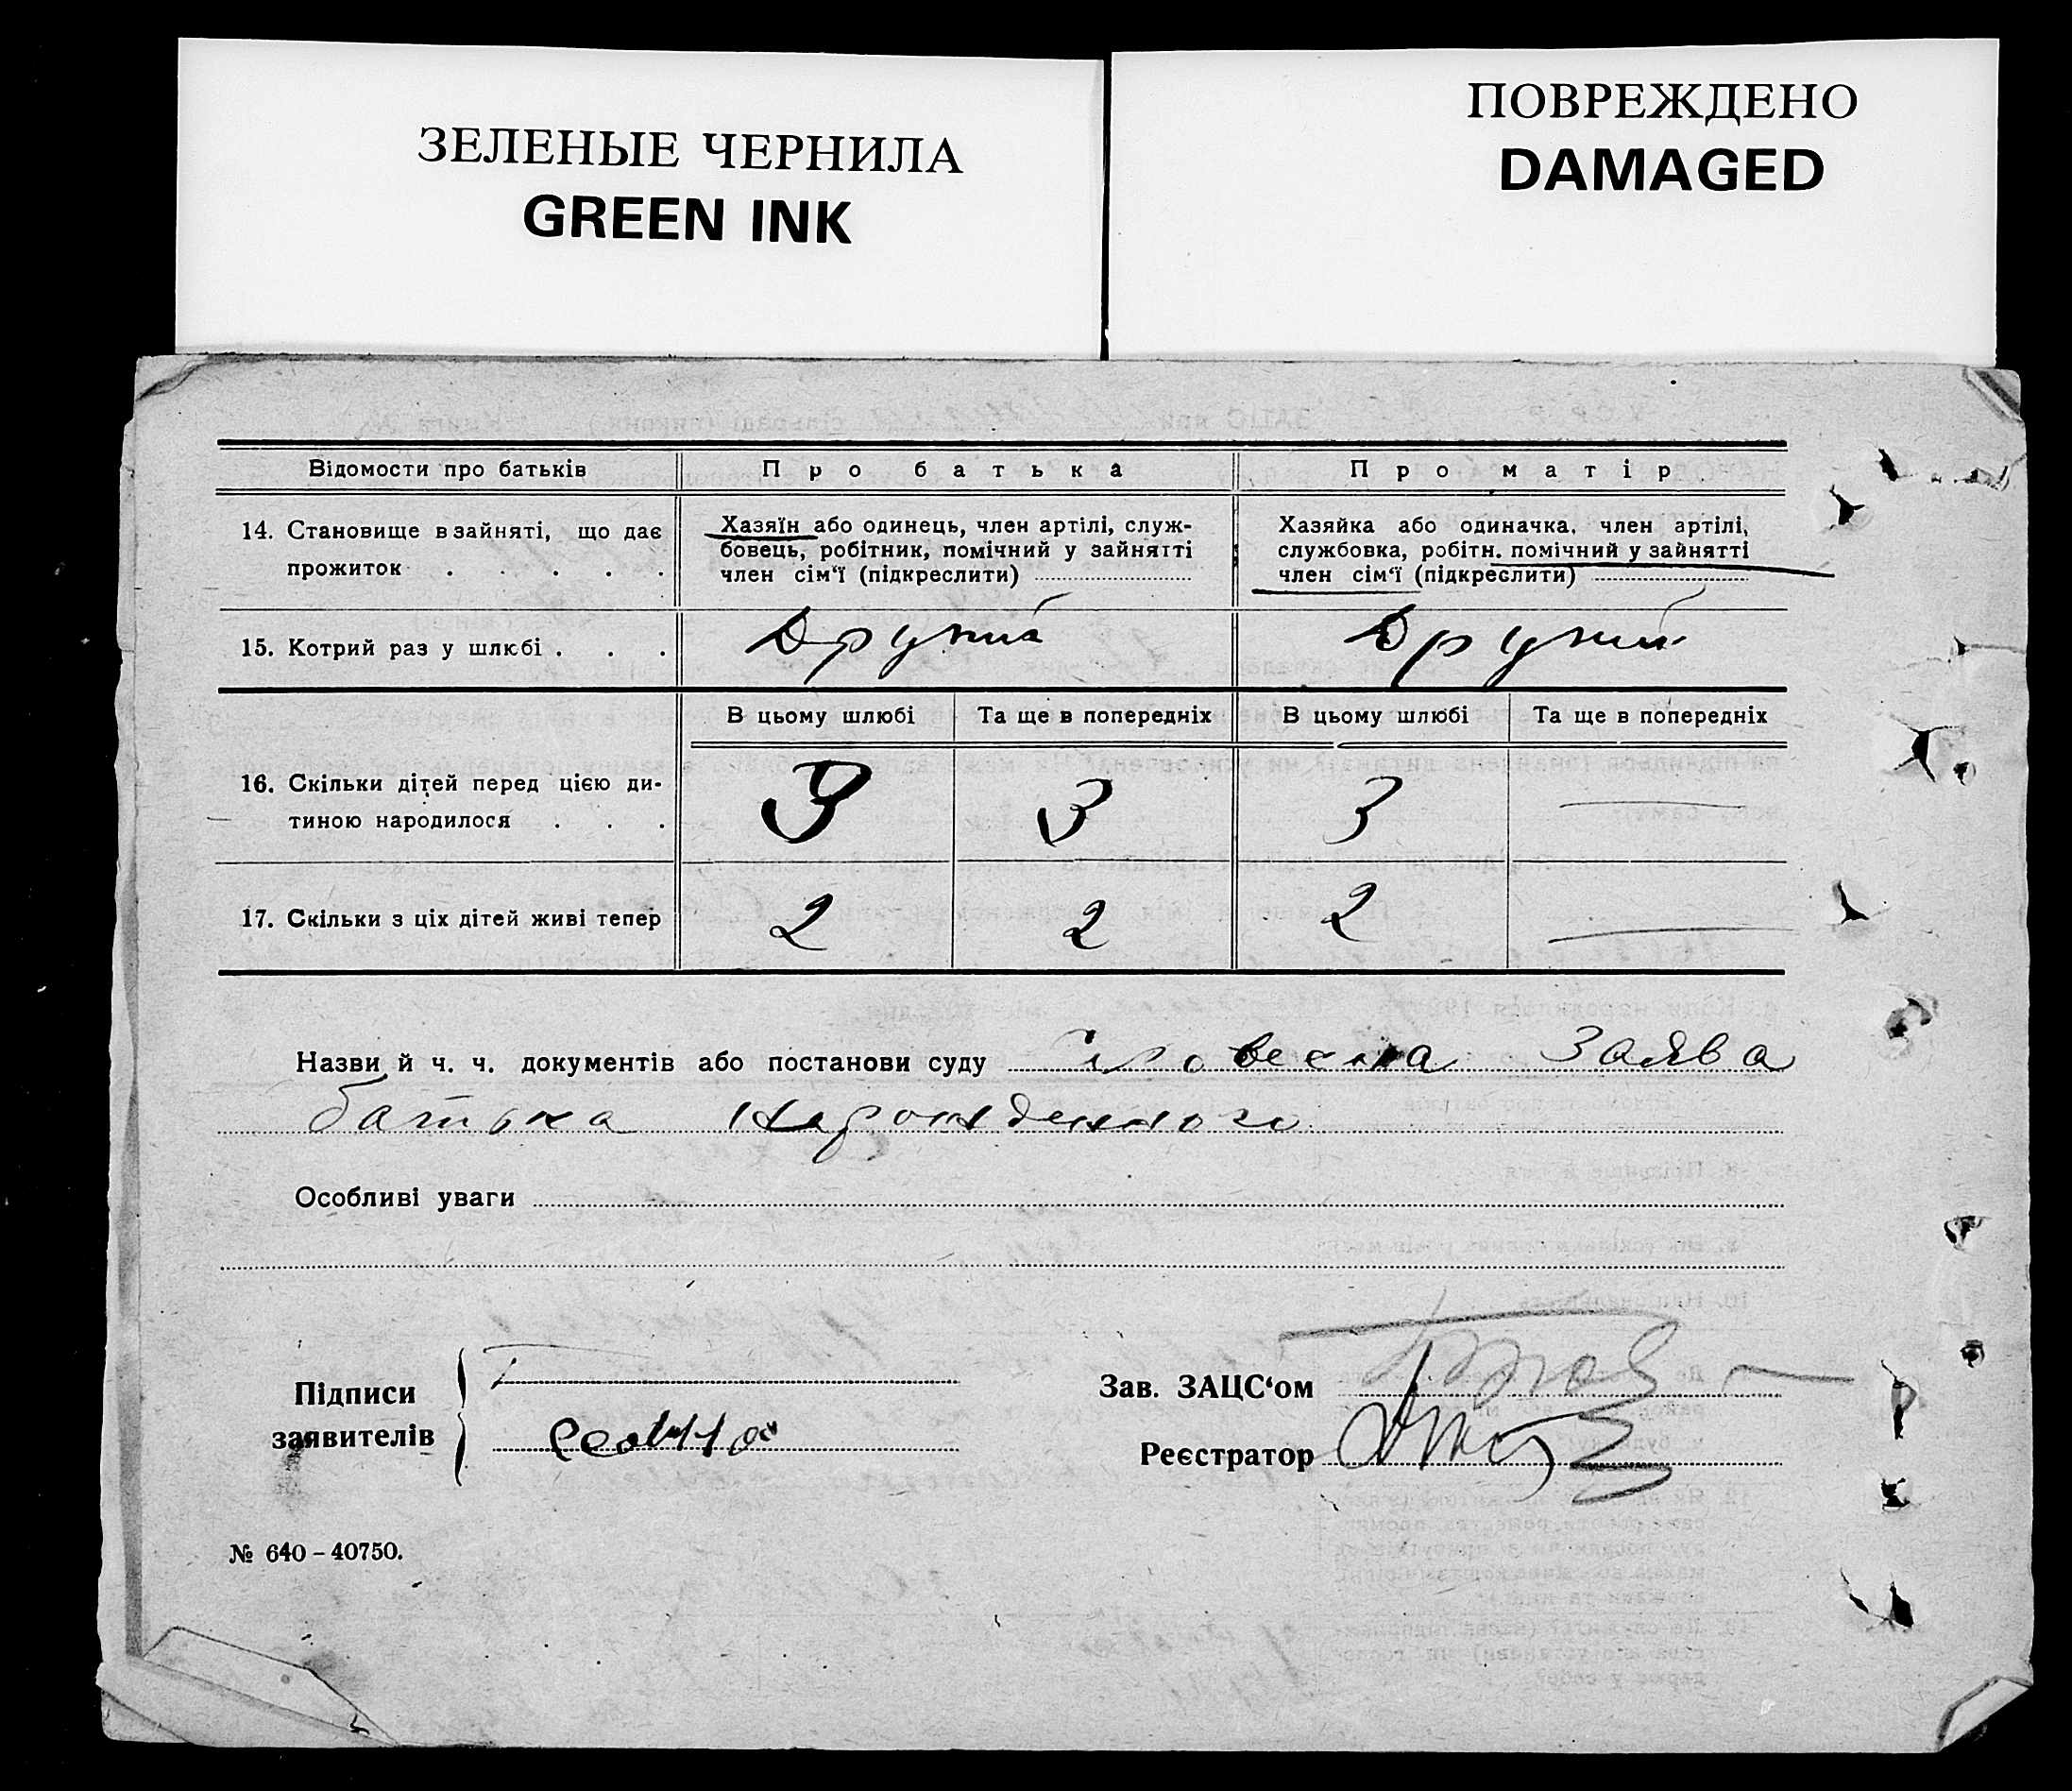 ЗЕЛЕНЫЕ ЧЕРНИЛА
GREEN INK
ПОВРЕЖДЕНО
DAMAGED
Відомости про батьків Про батька Про матір
14. Становище в зайняті, що дає прожиток . . . . .
Хазяїн або одинець, член артілі, служ-
бовець, робітник, помічний у зайнятті
член сім‘ї (підкреслити)
Хазяйка або одиначка, член артілі,
службовка, робітн. помічний у зайнятті
член сім‘ї (підкреслити)
15. Котрий раз у шлюбі . . . Другий Другий
В цьому шлюбі Та ще в попередніх В цьому шлюбі Та ще в попередніх
16. Скільки дітей перед цією ди-
тиною народилося . . . 3 3 3 —
17. Скільки з ціх дітей живі тепер 2 2 2 —
Назви й ч. ч. документів або постанови суду Словесна заява
батька нарожденного
Особливі уваги
Підписи
заявителів
Зав. ЗАЦС‘ом
Реєстратор
№ 640 – 40750.